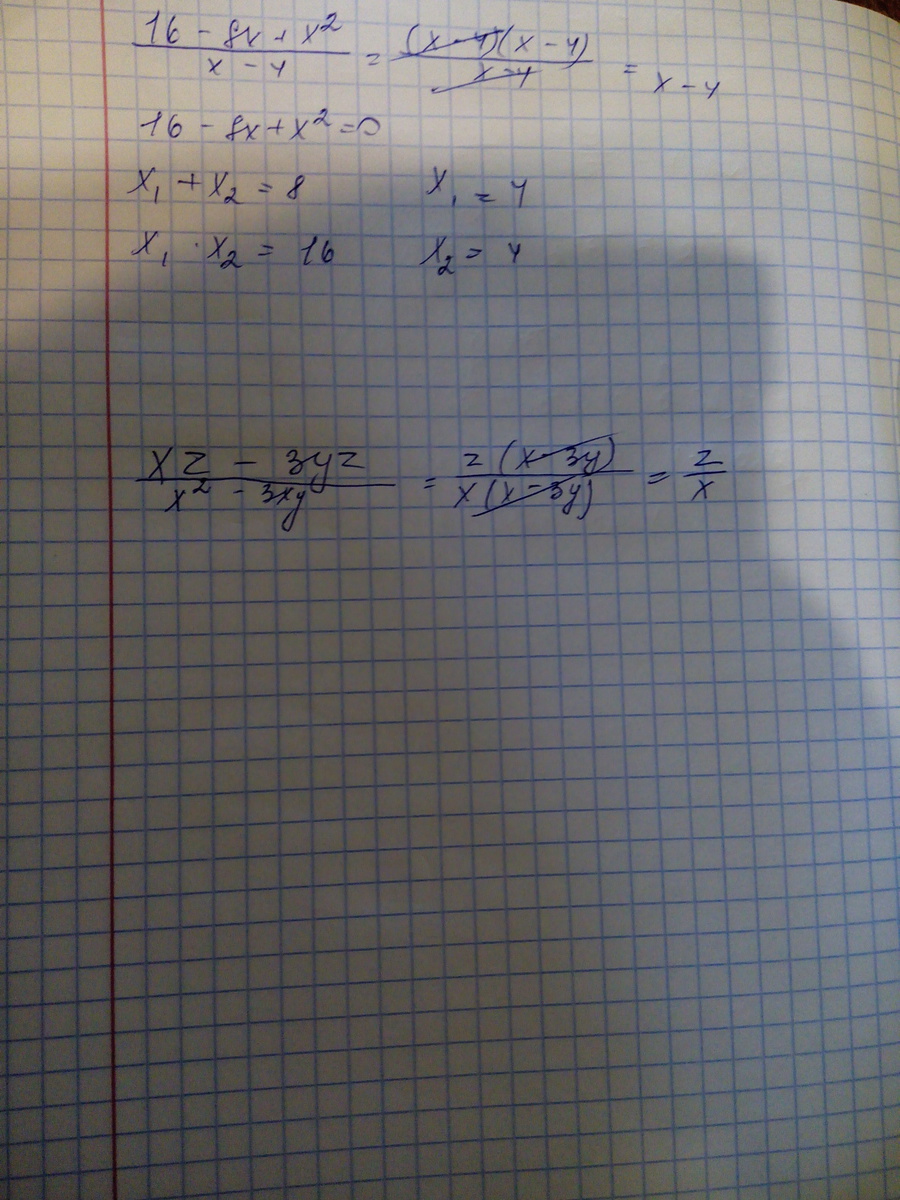 (16 - 8x + x²)/(x - 4) = ((x - 4)(x - 4))/(x - 4) = x - 4
16 - 8x + x² = 0
x₁ + x₂ = 8 x₁ = 4
x₁ · x₂ = 16 x₂ = 4
(xz - 3yz)/(x² - 3xy) = (z(x - 3y))/(x(x - 3y)) = z/x